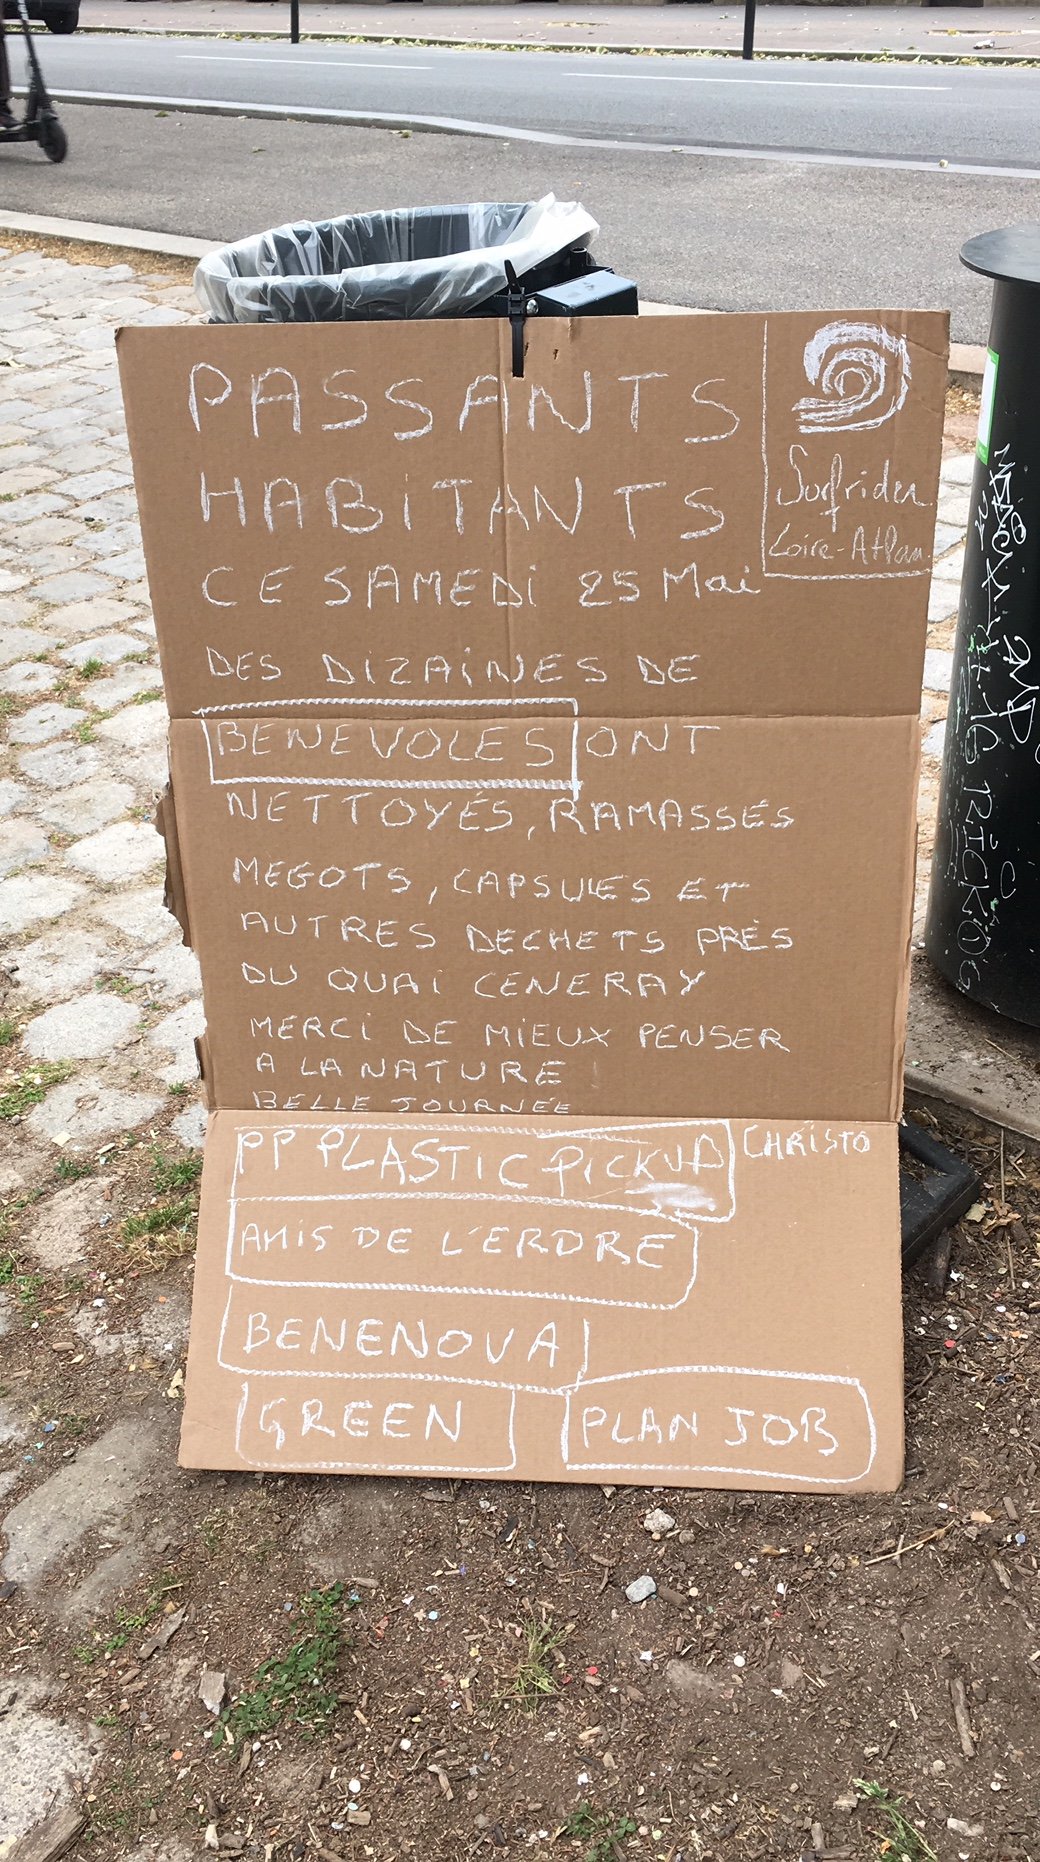 PASSANTS
HABiTANTS
Surfrider
Loire-Atlan.
CE SAMEDi 25 Mai
DES DiZAiNES DE
BENEVOLES ONT
NETTOYÉS, RAMASSÉS
MEGOTS, CAPSULES ET
AUTRES DECHETS PRÈS
DU QUAi CENERAY
MERCi DE MiEUX PENSER
A LA NATURE
BELLE JOURNÉE
PP PLASTIC PiCKUP CHRISTO
AMIS DE L'ERDRE
BENENOVA
GREEN PLAN JOB